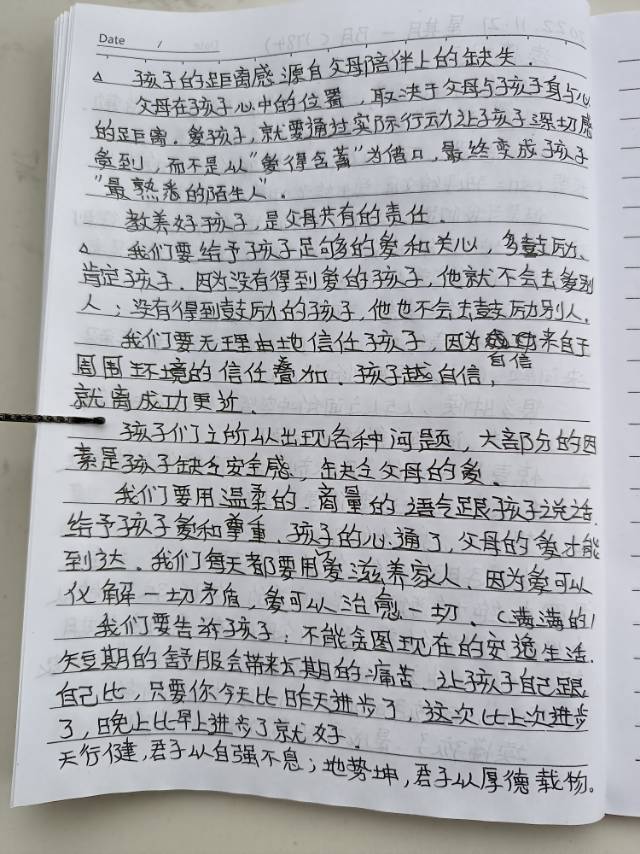 Date /
△ 孩子的距离感源自父母陪伴上的缺失.
父母在孩子心中的位置，取决于父母与孩子身与心
的距离.爱孩子,就要通过实际行动让孩子深切感
受到，而不是以"爱得含蓄"为借口，最终变成孩子
"最熟悉的陌生人".
教养好孩子,是父母共有的责任.
△ 我们要给予孩子足够的爱和关心，多鼓励、
肯定孩子.因为没有得到爱的孩子,他就不会去爱别
人；没有得到鼓励的孩子,他也不会去鼓励别人.
我们要无理由地信任孩子,因为自信来自于
周围环境的信任叠加.孩子越自信,
就离成功更近.
孩子们之所以出现各种问题，大部分的因
素是孩子缺乏安全感，缺乏父母的爱.
我们要用温柔的.商量的语气跟孩子说话.
给予孩子爱和尊重.孩子的心通了,父母的爱才能
到达.我们每天都要用爱滋养家人.因为爱可以
化解一切矛盾,爱可以治愈一切.(满满的)
我们要告诉孩子：不能贪图现在的安逸生活.
短期的舒服会带来长期的痛苦.让孩子自己跟
自己比，只要你今天比昨天进步了，这次比上次进步
了，晚上比早上进步了就好.
天行健,君子以自强不息；地势坤,君子以厚德载物。